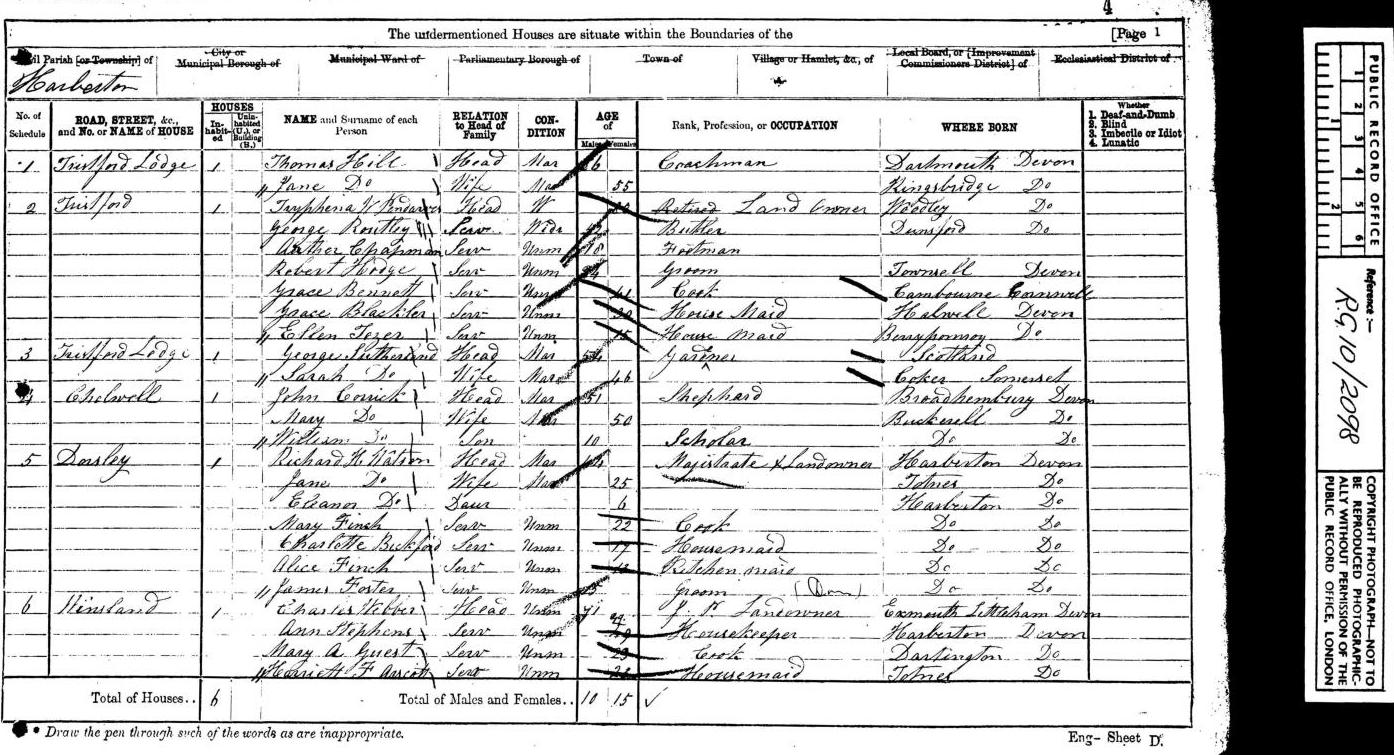 4
The undermentioned Houses are situate within the Boundaries of the [Page 1
Civil Parish [or Township] of City or Municipal Borough of Municipal Ward of Parliamentary Borough of Town of Village or Hamlet, &c., of Local Board, or [Improvement Commissioners District] of Ecclesiastical District of
Harberton
No. of Schedule ROAD, STREET, &c., and No. or NAME of HOUSE HOUSES Inhabited Uninhabited (U.), or Building (B.) NAME and Surname of each Person RELATION to Head of Family CONDITION AGE of Males Females Rank, Profession, or OCCUPATION WHERE BORN Whether 1. Deaf-and-Dumb 2. Blind 3. Imbecile or Idiot 4. Lunatic
1 Tristford Lodge 1 Thomas Hill Head Mar Coachman Dartmouth Devon
Jane Do Wife Mar 55 Kingsbridge Do
2 Tristford 1 Tryphena Head W Retired Land Owner Woodley Do
George Routley Serv Widr Butler Dunsford Do
Arther Chapman Serv Unm 18 Footman
Robert Hodge Serv Unm Groom Devon
Grace Bennett Serv Unm 41 Cook Cambourne Cornwell
Grace Blackler Serv Unm House Maid Halwell Devon
Ellen Tozer Serv Unm 15 House Maid Berrypomroy Do
3 Tristford Lodge 1 George Sutherland Head Mar Gardner Scotland
Sarah Do Wife Mar 46 Coker Somerset
4 Cholwell 1 John Head Mar 51 Shephard Broadhembury Devon
Mary Do Wife Mar 50 Buckerell Do
William Do Son 10 Scholar Do Do
5 Dorsley 1 Richard H Watson Head Mar Magistrate & Landowner Harberton Devon
Jane Do Wife Mar 25 Totnes Do
Eleanor Do Daur 6 Harberton Do
Mary Finch Serv Unm 22 Cook Do Do
Charlotte Bickford Serv Unm 17 Housemaid Do Do
Alice Finch Serv Unm Kitchen maid Do Do
James Foster Serv Unm Groom (Dom) Do Do
6 Hinsland 1 Charles Webber Head Unm 71 J. P. Landowner Exmouth Littleham Devon
Ann Stephens Serv Unm Housekeeper Harberton Devon
Mary A Guest Serv Unm 23 Cook Dartington Do
Harriett F Arscott Serv Unm Housemaid Totnes Do
Total of Houses.. 6 Total of Males and Females.. 10 15
* Draw the pen through such of the words as are inappropriate. Eng- Sheet D.
PUBLIC RECORD OFFICE
1 2 3 4 5 6
1 2
Reference:-
RG 10/2098
COPYRIGHT PHOTOGRAPH—NOT TO BE REPRODUCED PHOTOGRAPHICALLY WITHOUT PERMISSION OF THE PUBLIC RECORD OFFICE, LONDON